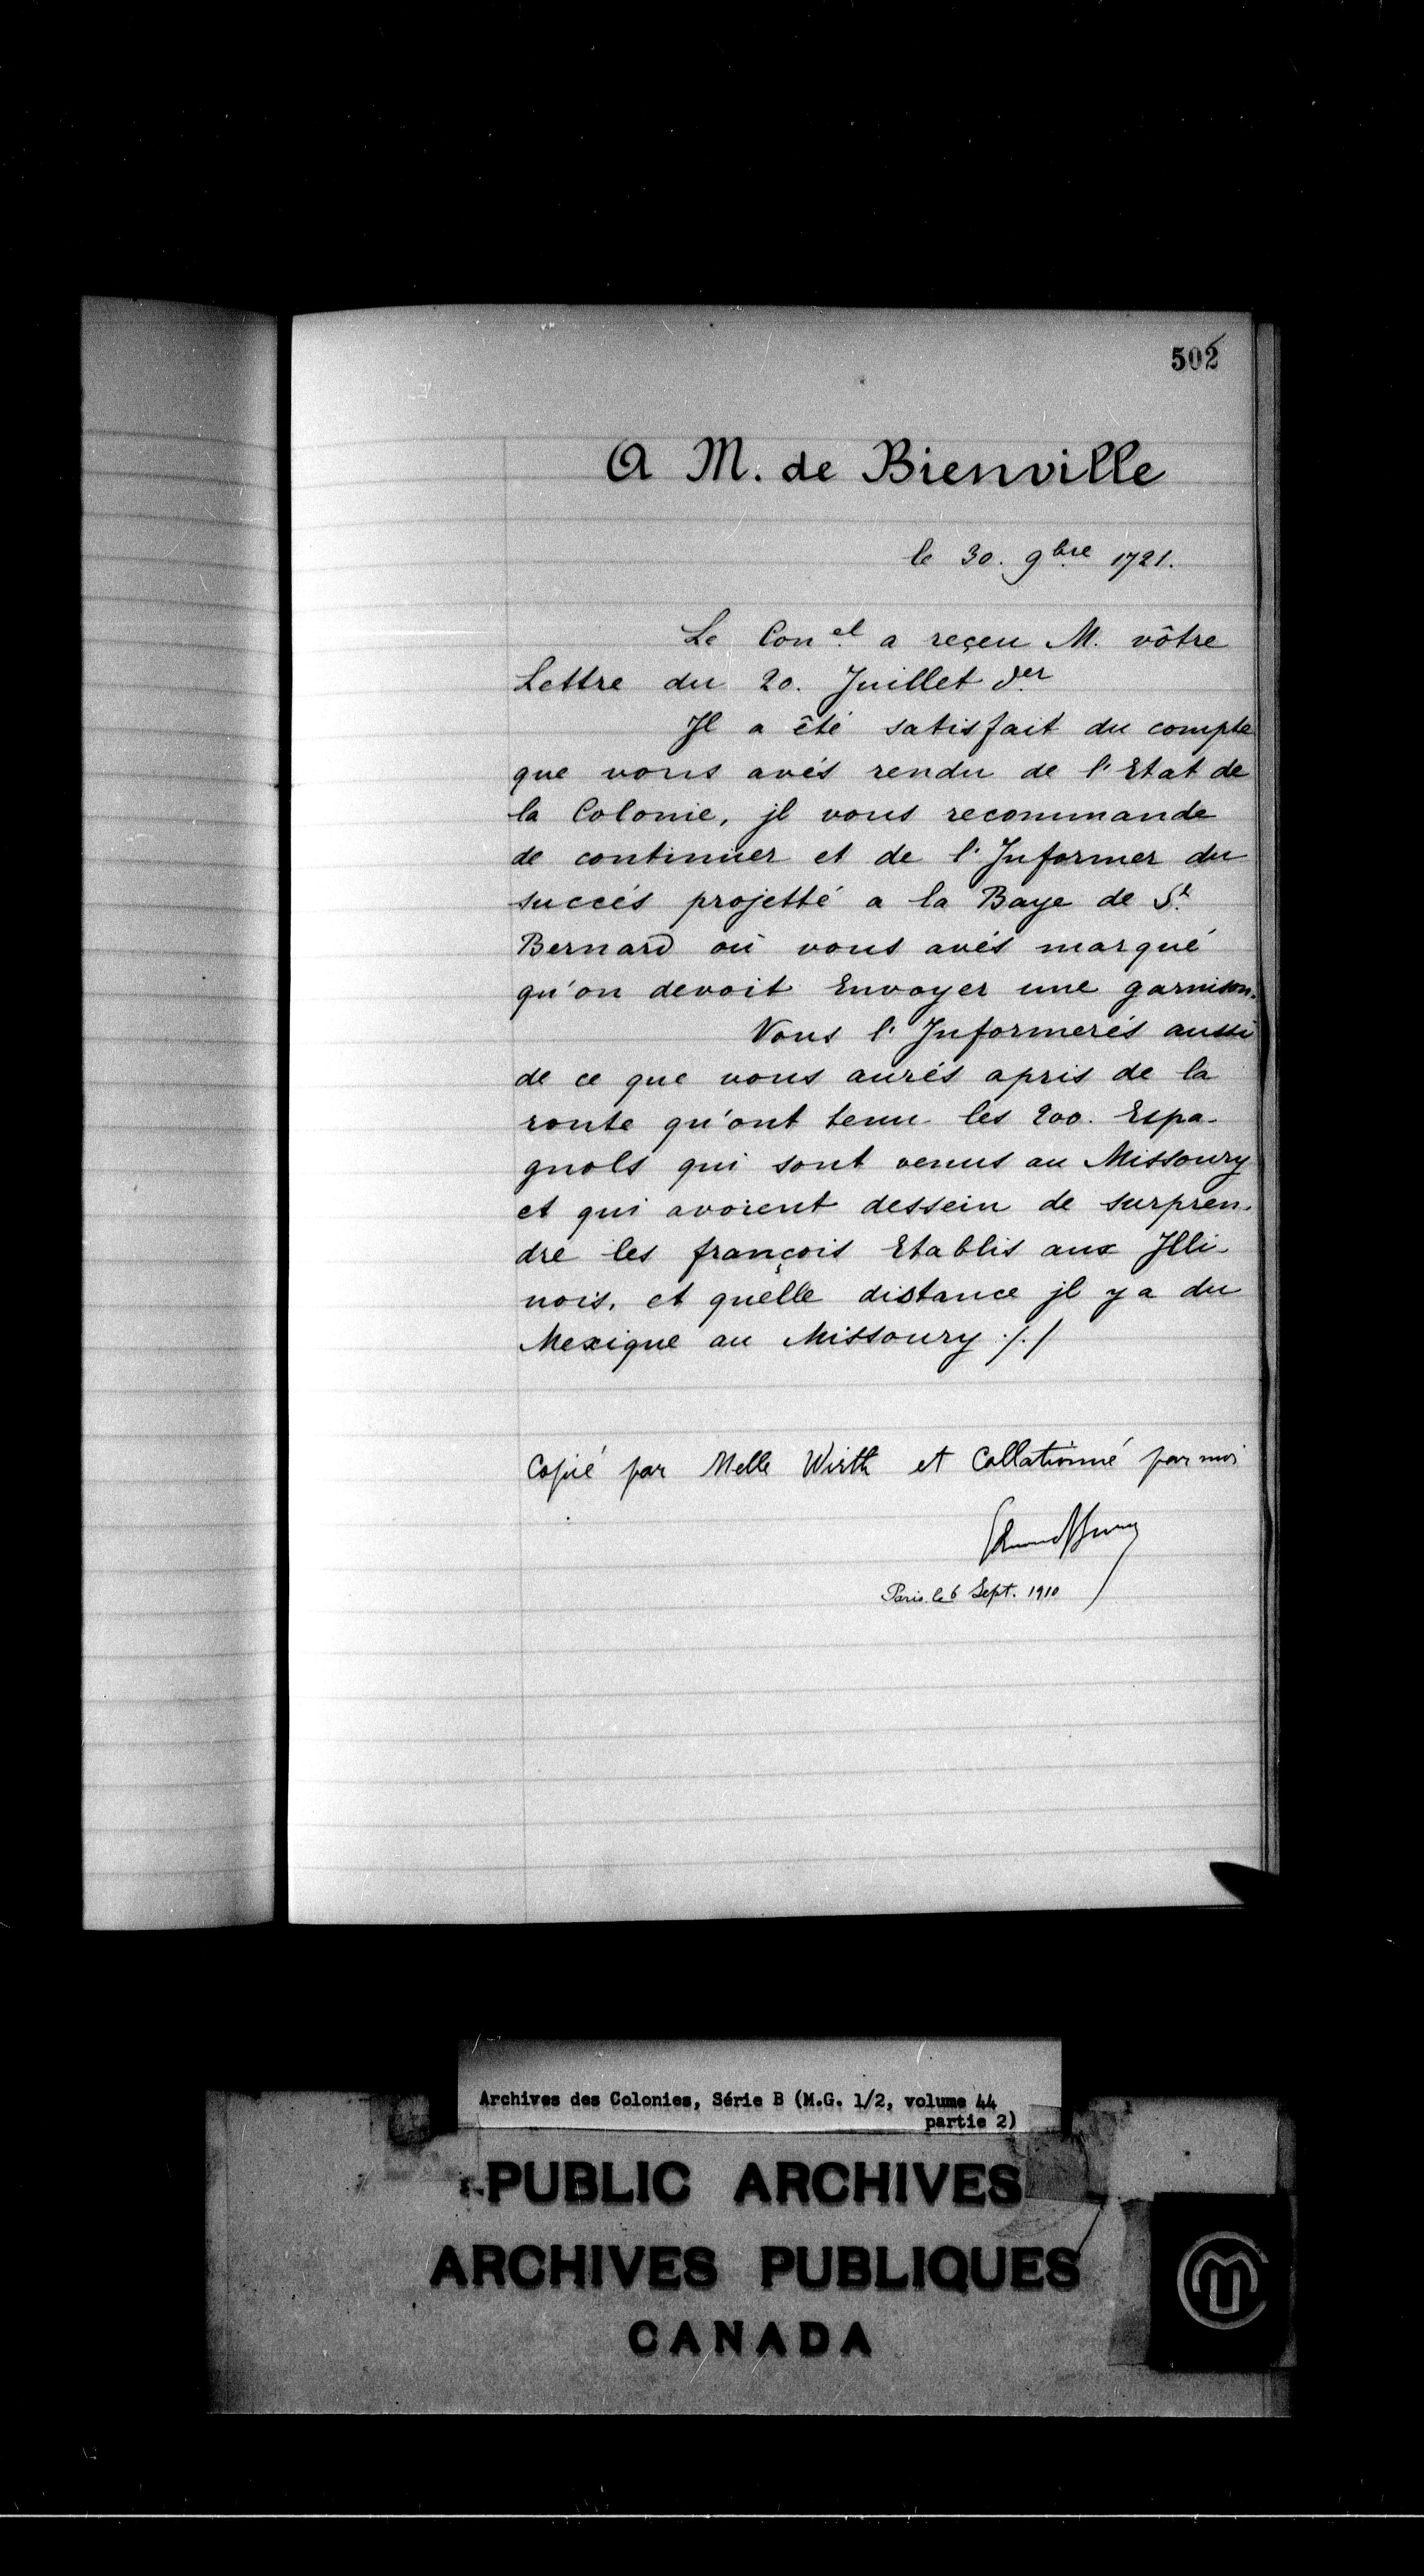 502
A M. de Bienville
le 30. 9bre 1721.
Le Conel a reçeu M. vôtre
Lettre du 20. Juillet der
Jl a êté satisfait du compte
que vous avés rendu de l'Etat de
la Colonie, jl vous recommande
de continuer et de l'Informer du
succés projetté a la Baye de St
Bernard où vous avés marqué
qu'on devoit Envoyer une garnison.
Vous l'Informerés aussi
de ce que vous aurés apris de la
route qu'ont tenu les 200. Espa-
gnols qui sont venus au Missoury
et qui avoient dessein de surpren-
dre les françois Etablis aux Jlli-
nois, et quelle distance jl y a du
Mexique au Missoury ./.
Copié par Melle Wirth et Collationné par moi
Paris le 6 Sept. 1910
Archives des Colonies, Série B (M.G. 1/2, volume 44
partie 2)
PUBLIC ARCHIVES
ARCHIVES PUBLIQUES
CANADA